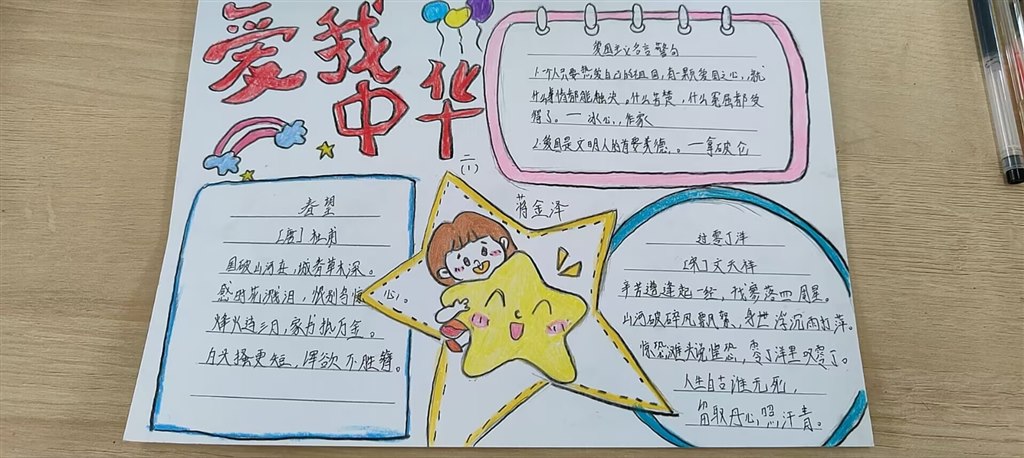 爱我
中华
二(1)
蒋金泽
爱国主义名言警句
1.一个人只要热爱自己的祖国,有一颗爱国之心,就
什么事情都能解决。什么苦楚,什么冤屈都受
得了。——冰心,作家
2.爱国是文明人的首要美德。——拿破仑
春望
[唐]杜甫
国破山河在,城春草木深。
感时花溅泪,恨别鸟惊心。
烽火连三月,家书抵万金。
白头搔更短,浑欲不胜簪。
过零丁洋
[宋]文天祥
辛苦遭逢起一经,寥落四周星。
山河破碎风飘絮,身世浮沉雨打萍。
惶恐滩头说惶恐,零丁洋里叹零丁。
人生自古谁无死,
留取丹心照汗青。